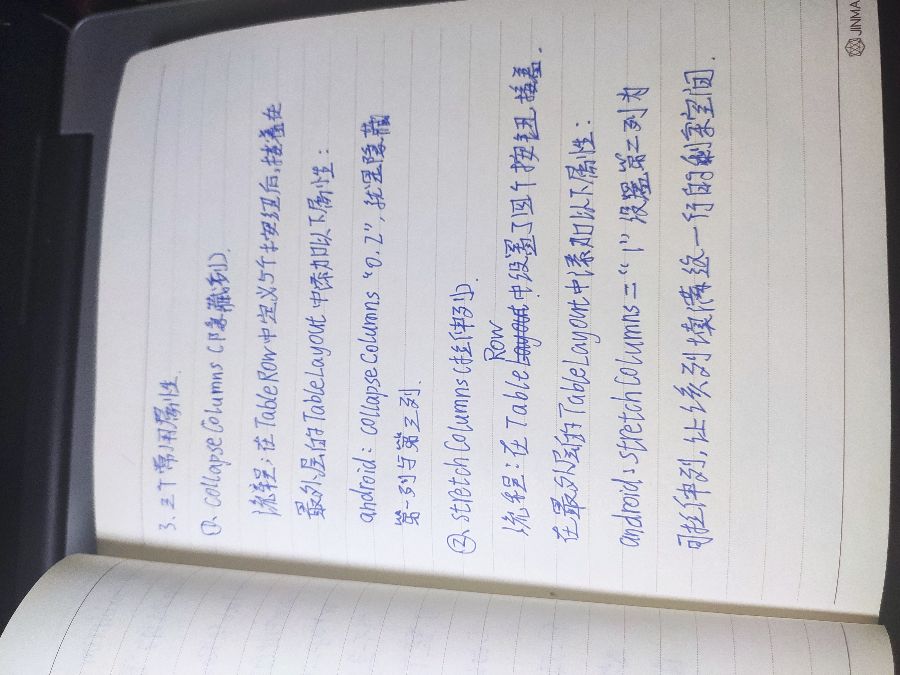 3. 三个常用属性.
①. collapseColumns (隐藏列).
流程: 在TableRow中定义5个按钮后, 接着在
最外层的TableLayout中添加以下属性:
android: collapseColumns "0.2", 就是隐藏
第一列与第三列.
②. stretchColumns (拉伸列).
流程: 在TableRow中设置了四个按钮, 接着.
在最外层的TableLayout中添加以下属性:
android: stretchColumns = "1" 设置第二列为
可拉伸列, 让该列填满这一行的剩余空间.
JINMA